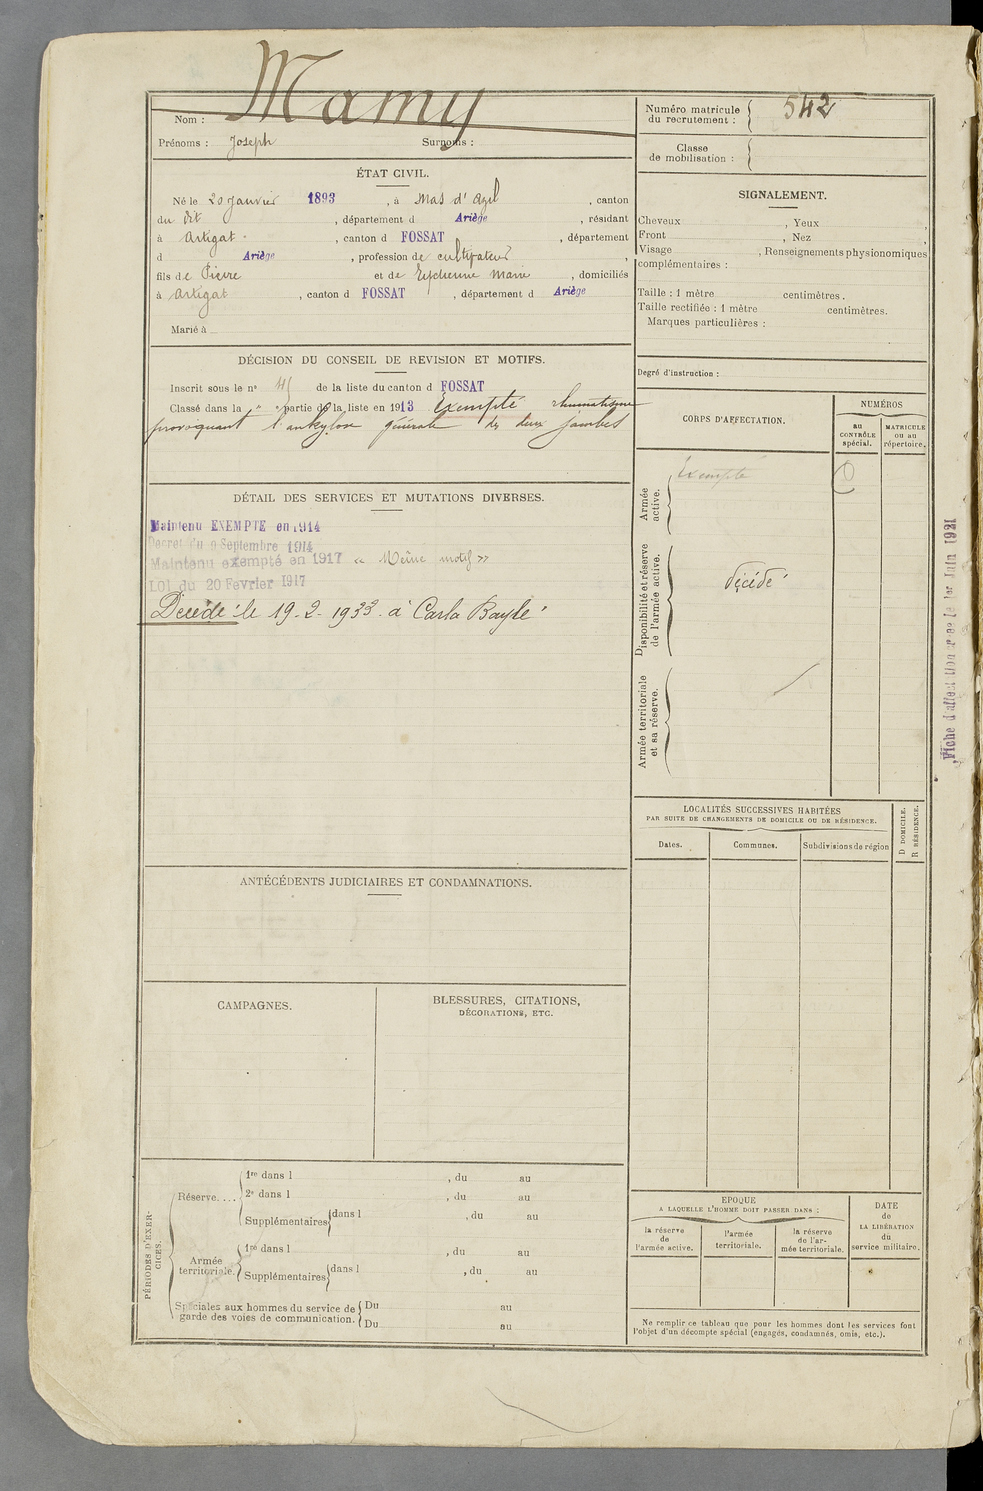 Mamy
Nom :
Prénoms : Joseph Surnoms :
Numéro matricule du recrutement : 542
Classe de mobilisation :
ÉTAT CIVIL.
Né le 20 janvier 1893, à Mas d'Azil, canton
du dit, département d Ariège, résidant
à Artigat, canton d FOSSAT, département
d Ariège, profession de cultivateur,
fils de Pierre et de Marie, domiciliés
à Artigat, canton d FOSSAT, département d Ariège
Marié à
SIGNALEMENT.
Cheveux , Yeux ,
Front , Nez ,
Visage , Renseignements physionomiques
complémentaires :
Taille : 1 mètre centimètres.
Taille rectifiée : 1 mètre centimètres.
Marques particulières :
Degré d'instruction :
DÉCISION DU CONSEIL DE REVISION ET MOTIFS.
Inscrit sous le n° de la liste du canton d FOSSAT
Classé dans la " " partie de la liste en 1913 Exempté rhumatisme
provoquant l'ankylose générale des deux jambes
DÉTAIL DES SERVICES ET MUTATIONS DIVERSES.
Maintenu EXEMPTE en 1914
Decret du 9 Septembre 1914
Maintenu exempté en 1917 « Même motif »
LOI du 20 Fevrier 1917
Décédé le 19-2-1933 à Carla Bayle
CORPS D'AFFECTATION.
NUMÉROS
au CONTRÔLE spécial.
MATRICULE ou au répertoire.
Armée active.
Exempté
Disponibilité et réserve de l'armée active.
décédé
Armée territoriale et sa réserve.
Fiche d'affectation le 1er Juin 1921
LOCALITÉS SUCCESSIVES HABITÉES
PAR SUITE DE CHANGEMENTS DE DOMICILE OU DE RÉSIDENCE.
Dates.
Communes.
Subdivisions de région
D DOMICILE.
R RÉSIDENCE.
ANTÉCÉDENTS JUDICIAIRES ET CONDAMNATIONS.
CAMPAGNES.
BLESSURES, CITATIONS,
DÉCORATIONS, ETC.
PÉRIODES D'EXERCICES.
Réserve....
1re dans l , du au
2e dans l , du au
Supplémentaires dans l , du au
Armée territoriale.
1re dans l , du au
Supplémentaires dans l , du au
Spéciales aux hommes du service de Du au
garde des voies de communication. Du au
EPOQUE
A LAQUELLE L'HOMME DOIT PASSER DANS :
la réserve de l'armée active.
l'armée territoriale.
la réserve de l'armée territoriale.
DATE de LA LIBÉRATION du service militaire.
Ne remplir ce tableau que pour les hommes dont les services font
l'objet d'un décompte spécial (engagés, condamnés, omis, etc.).